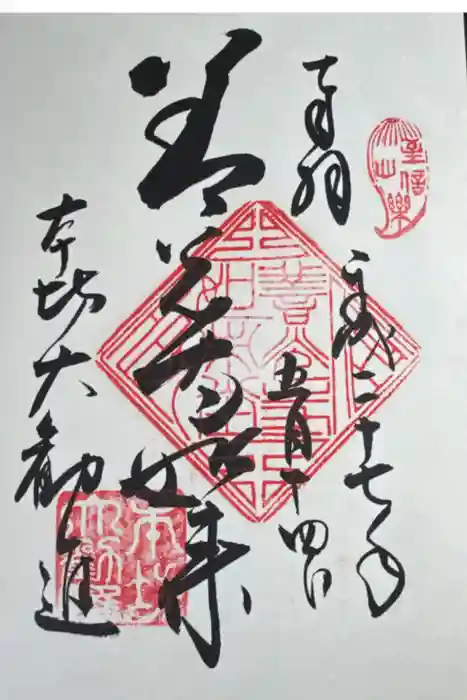 奉拝
平成二十七年
五月十四日
善光寺如来
本坊大勧進